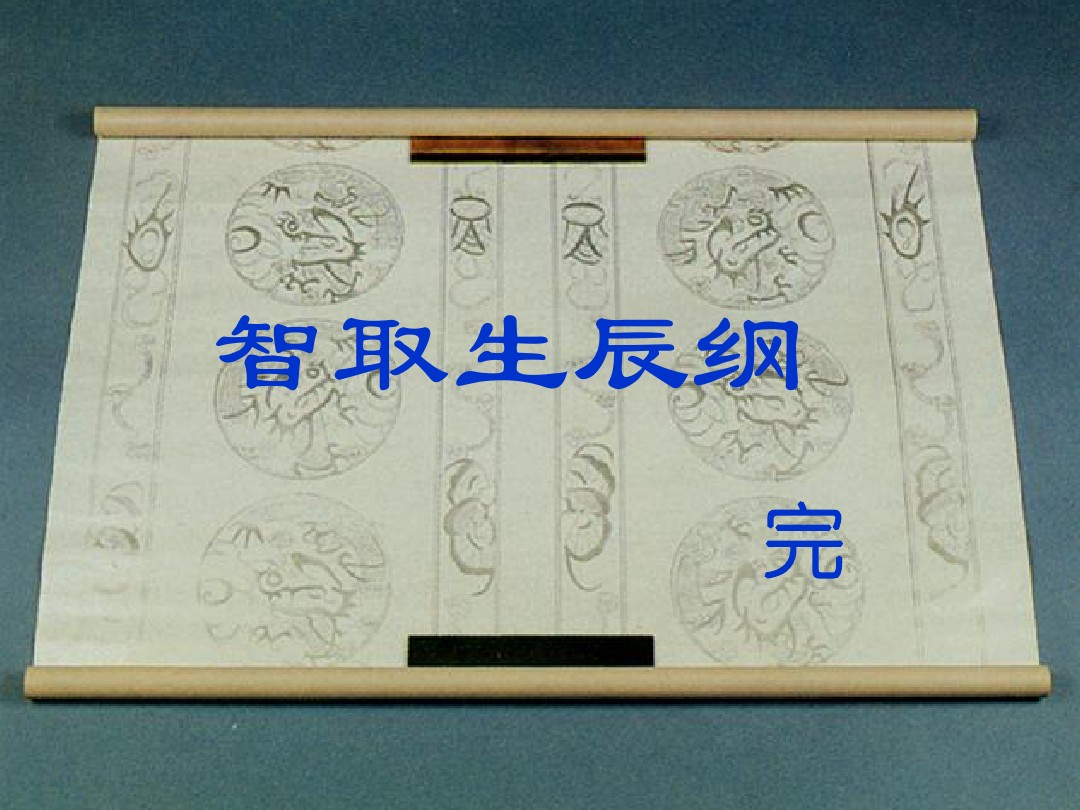 智取生辰纲
完